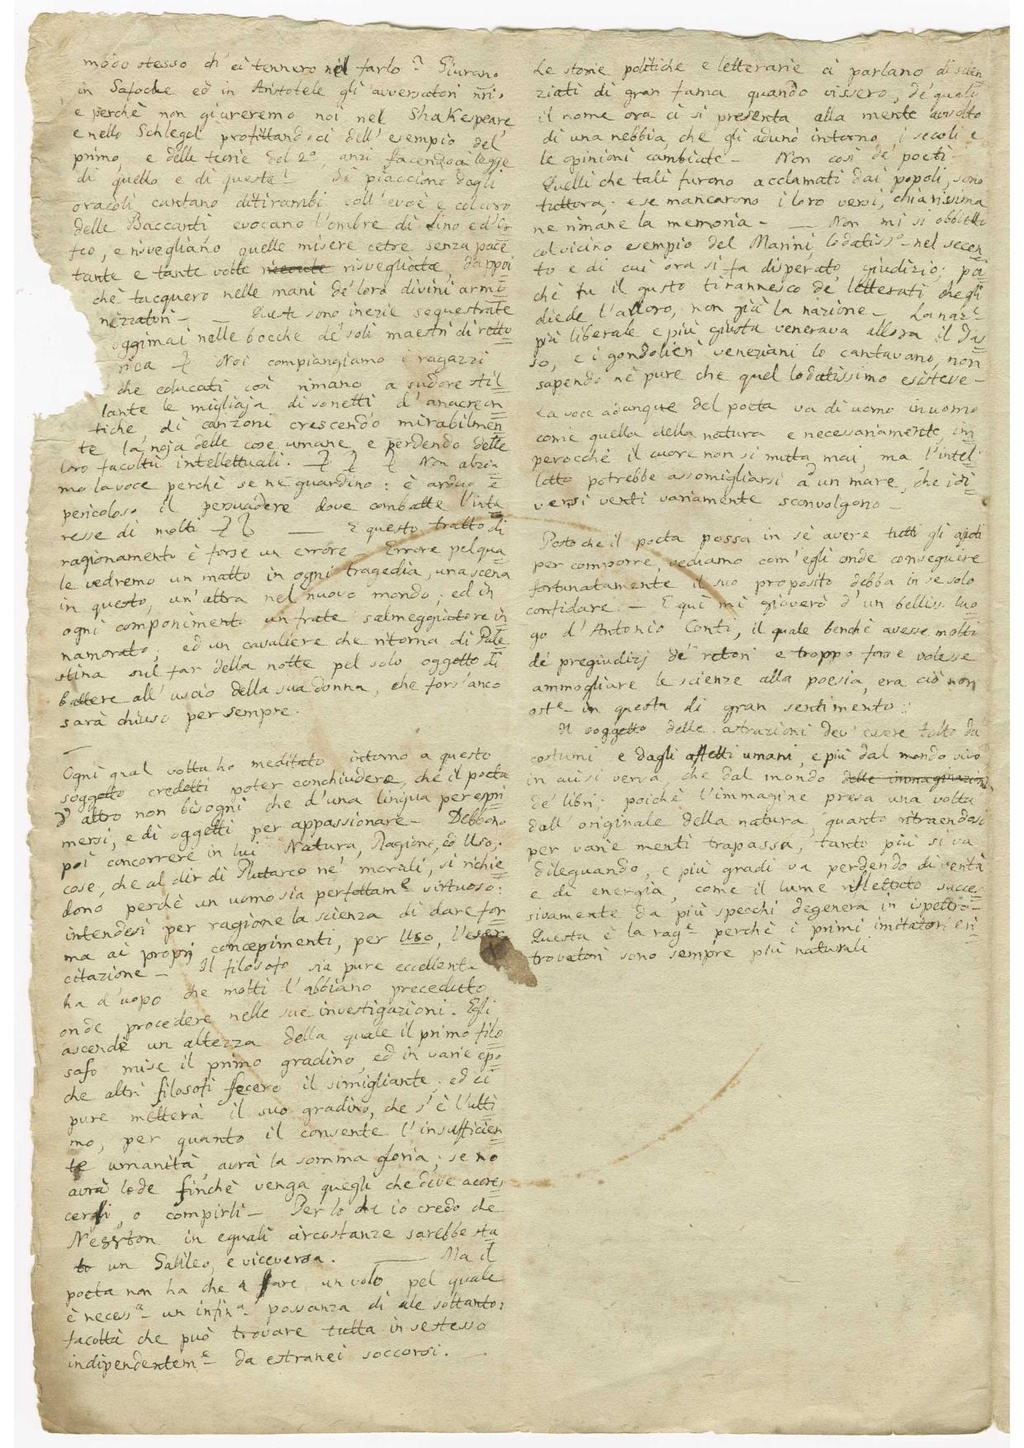 modo stesso ch' ei tennero nel farlo? Giurano
in Sofocle ed in Aristotele gli avversatori nri,
e perchè non giureremo noi nel Shakespeare
e nello Schlegel profittandoci dell' esempio del
primo, e delle teorie del 2º, anzi facendoci legge
di quello e di queste? Si piacciono dagli
oracoli, cantano ditirambi coll' evoè e coturo
delle Baccanti evocano l'ombre di Lino e d'Or
feo, e risvegliano quelle misere cetre senza pace
tante e tante volte risvegliate, dappoi
chè tacquero nelle mani de' loro divini armo
nizzatori — Queste sono inezie sequestrate
oggimai nelle bocche de' soli maestri di retto
rica Noi compiangiamo i ragazzi
che educati così rimano a sudore stil
lante le migliaja di sonetti d' anacreon
tiche di canzoni crescendo mirabilmen
te la noja delle cose umane, e perdendo delle
loro facoltà intellettuali. Non alzia
mo la voce perchè se ne guardino: è arduo e
pericoloso il persuadere dove combatte l'inte
resse di molti — E questo tratto di
ragionamento è forse un errore — Errore pel qua
le vedremo un matto in ogni tragedia, una scena
in questo, un' altra nel nuovo mondo; ed in
ogni componimento un frate salmeggiatore in
namorato; ed un cavaliere che ritorna di Pale
stina sul far della notte pel solo oggetto di
battere all' uscio della sua donna, che fors' anco
sarà chiuso per sempre.
Ogni qual volta ho meditato intorno a questo
soggetto credetti poter conchiudere, che il poeta
d' altro non bisogni che d'una lingua per espri
mersi, e di oggetti per appassionare — Debbono
poi concorrere in lui Natura, Ragione, ed Uso;
cose, che al dir di Plutarco ne' morali, si richie
dono perchè un uomo sia perfettame virtuoso:
intendesi per ragione la scienza di dare for
ma ai propri concepimenti, per Uso, l'eser
citazione — Il filosofo sia pure eccellente
ha d'uopo che molti l'abbiano preceduto
onde procedere nelle sue investigazioni. Egli
ascende un altezza della quale il primo filo
sofo mise il primo gradino, ed in varie epo
che altri filosofi fecero il simigliante; ed ei
pure metterà il suo gradino, che s' è l'ulti
mo, per quanto il consente l'insufficien
te umanità, avrà la somma gloria; se no
avrà lode finchè venga quegli che deve accre
cergli, o compirli — Per lo che io credo che
Newton in eguali circostanze sarebbe sta
to un Galileo, e viceversa. — Ma il
poeta non ha che a fare un volo pel quale
è necessa un infina possanza di ale soltanto:
facoltà che può trovare tutta in se stesso
indipendenteme da estranei soccorsi.
Le storie politiche e letterarie ci parlano di scien
ziati di gran fama quando vissero, de' quali
il nome ora ci si presenta alla mente avvolto
di una nebbia, che gli adunò intorno i secoli e
le opinioni cambiate — Non così de' poeti.
Quelli che tali furono acclamati dai popoli, sono
tuttora; e se mancarono i loro versi, chiarissima
ne rimane la memoria — Non mi si obbietti
col vicino esempio del Marini, lodatisso nel secen
to e di cui ora si fa disperato giudizio; poi
chè fu il gusto tirannesco de' letterati che gli
diede l'alloro, non già la nazione — La naze
più liberale e più giusta venerava allora il Tas
so, e i gondolieri veneziani lo cantavano, non
sapendo nè pure che quel lodatissimo esisteva —
La voce adunque del poeta va di uomo in uomo
come quella della natura e necessariamente, im
perocchè il cuore non si muta mai, ma l'intel
letto potrebbe assomigliarsi a un mare, che i di
versi venti variamente sconvolgono —
Posto che il poeta possa in se avere tutti gli ajuti
per comporre, vediamo com' egli onde conseguire
fortunatamente il suo proposito debba in se solo
confidare. — E quì mi gioverò d' un belliss. luo
go d' Antonio Conti, il quale benchè avesse molti
de' pregiudizj de' retori e troppo forse volesse
ammogliare le scienze alla poesia, era ciò non
oste in questa di gran sentimento:
Il soggetto delle astrazioni dev' essere tolto da
costumi e dagli affetti umani, e più dal mondo vivo
in cui si versa, che dal mondo delle immaginazioni
de' libri; poichè l'immagine presa una volta
dall' originale della natura, quanto ritraendosi
per varie menti trapassa, tanto più si va
dileguando, e più gradi va perdendo di verità
e di energia, come il lume riflettuto succes
sivamente da più specchi degenera in ispettro —
Questa è la rage perchè i primi imitatori ed
trovatori sono sempre più naturali